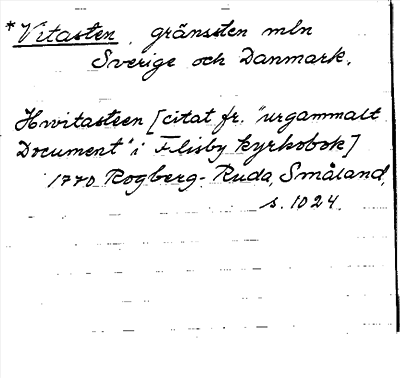 *Vitasten, gränssten mln
Sverige och Danmark.
Hwitasteen [citat fr. "urgammalt
Document" i Flisby kyrkobok]
1770 Rogberg-Ruda, Småland,
s. 1024.